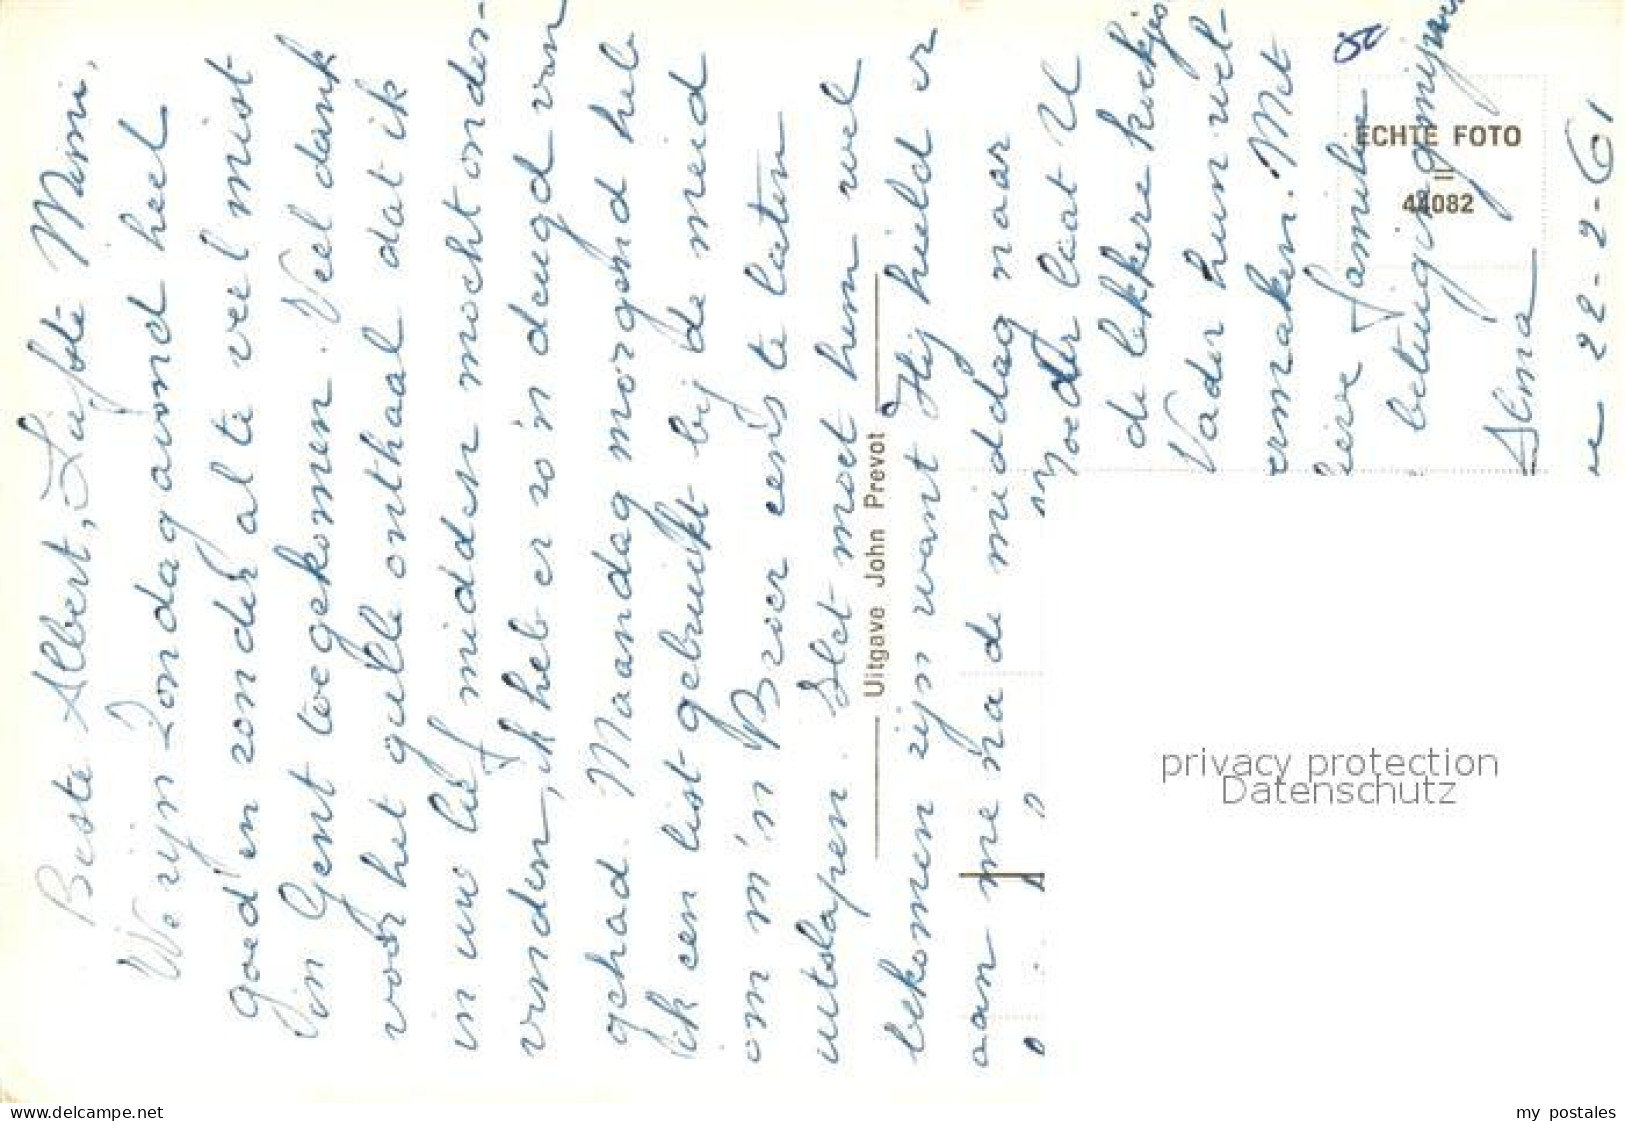 Beste Albert, Liefste Mimi,
We zijn Zondagavond heel
goed en zonder al te veel mist
in Gent toegekomen. Veel dank
voor het gulle onthaal dat ik
in uw lief midden mocht onder-
vinden, ik heb er zo'n deugd van
gehad. Maandag morgend heb
ik een list gebruikt bij de meid
om m'n Broer eens te laten
uitslapen. Het moet hem wel
bekomen zijn want Hij hield er
aan me na de middag naar
Moeder laat U
de lekkere koekjes
Vader hun wel
smaken. Met
lieve familie
betuigingmijnen
Alma
22-2-61
ECHTE FOTO
II
44082
Uitgave John Prevot
privacy protection
Datenschutz
www.delcampe.net
my postales